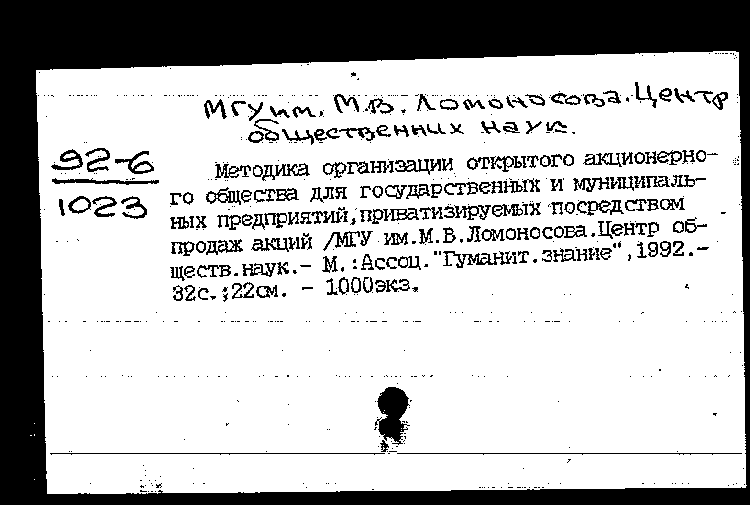 МГУ им. М.В. Ломоносова. Центр
общественных наук.
92-6
1023
Методика организации открытого акционерно-
го общества для государственных и муниципаль-
ных предприятий,приватизируемых посредством
продаж акций /МГУ им.М.В.Ломоносова.Центр об-
ществ.наук.- М.:Ассоц."Гуманит.знание",1992.-
32с.;22см. - 1000экз.